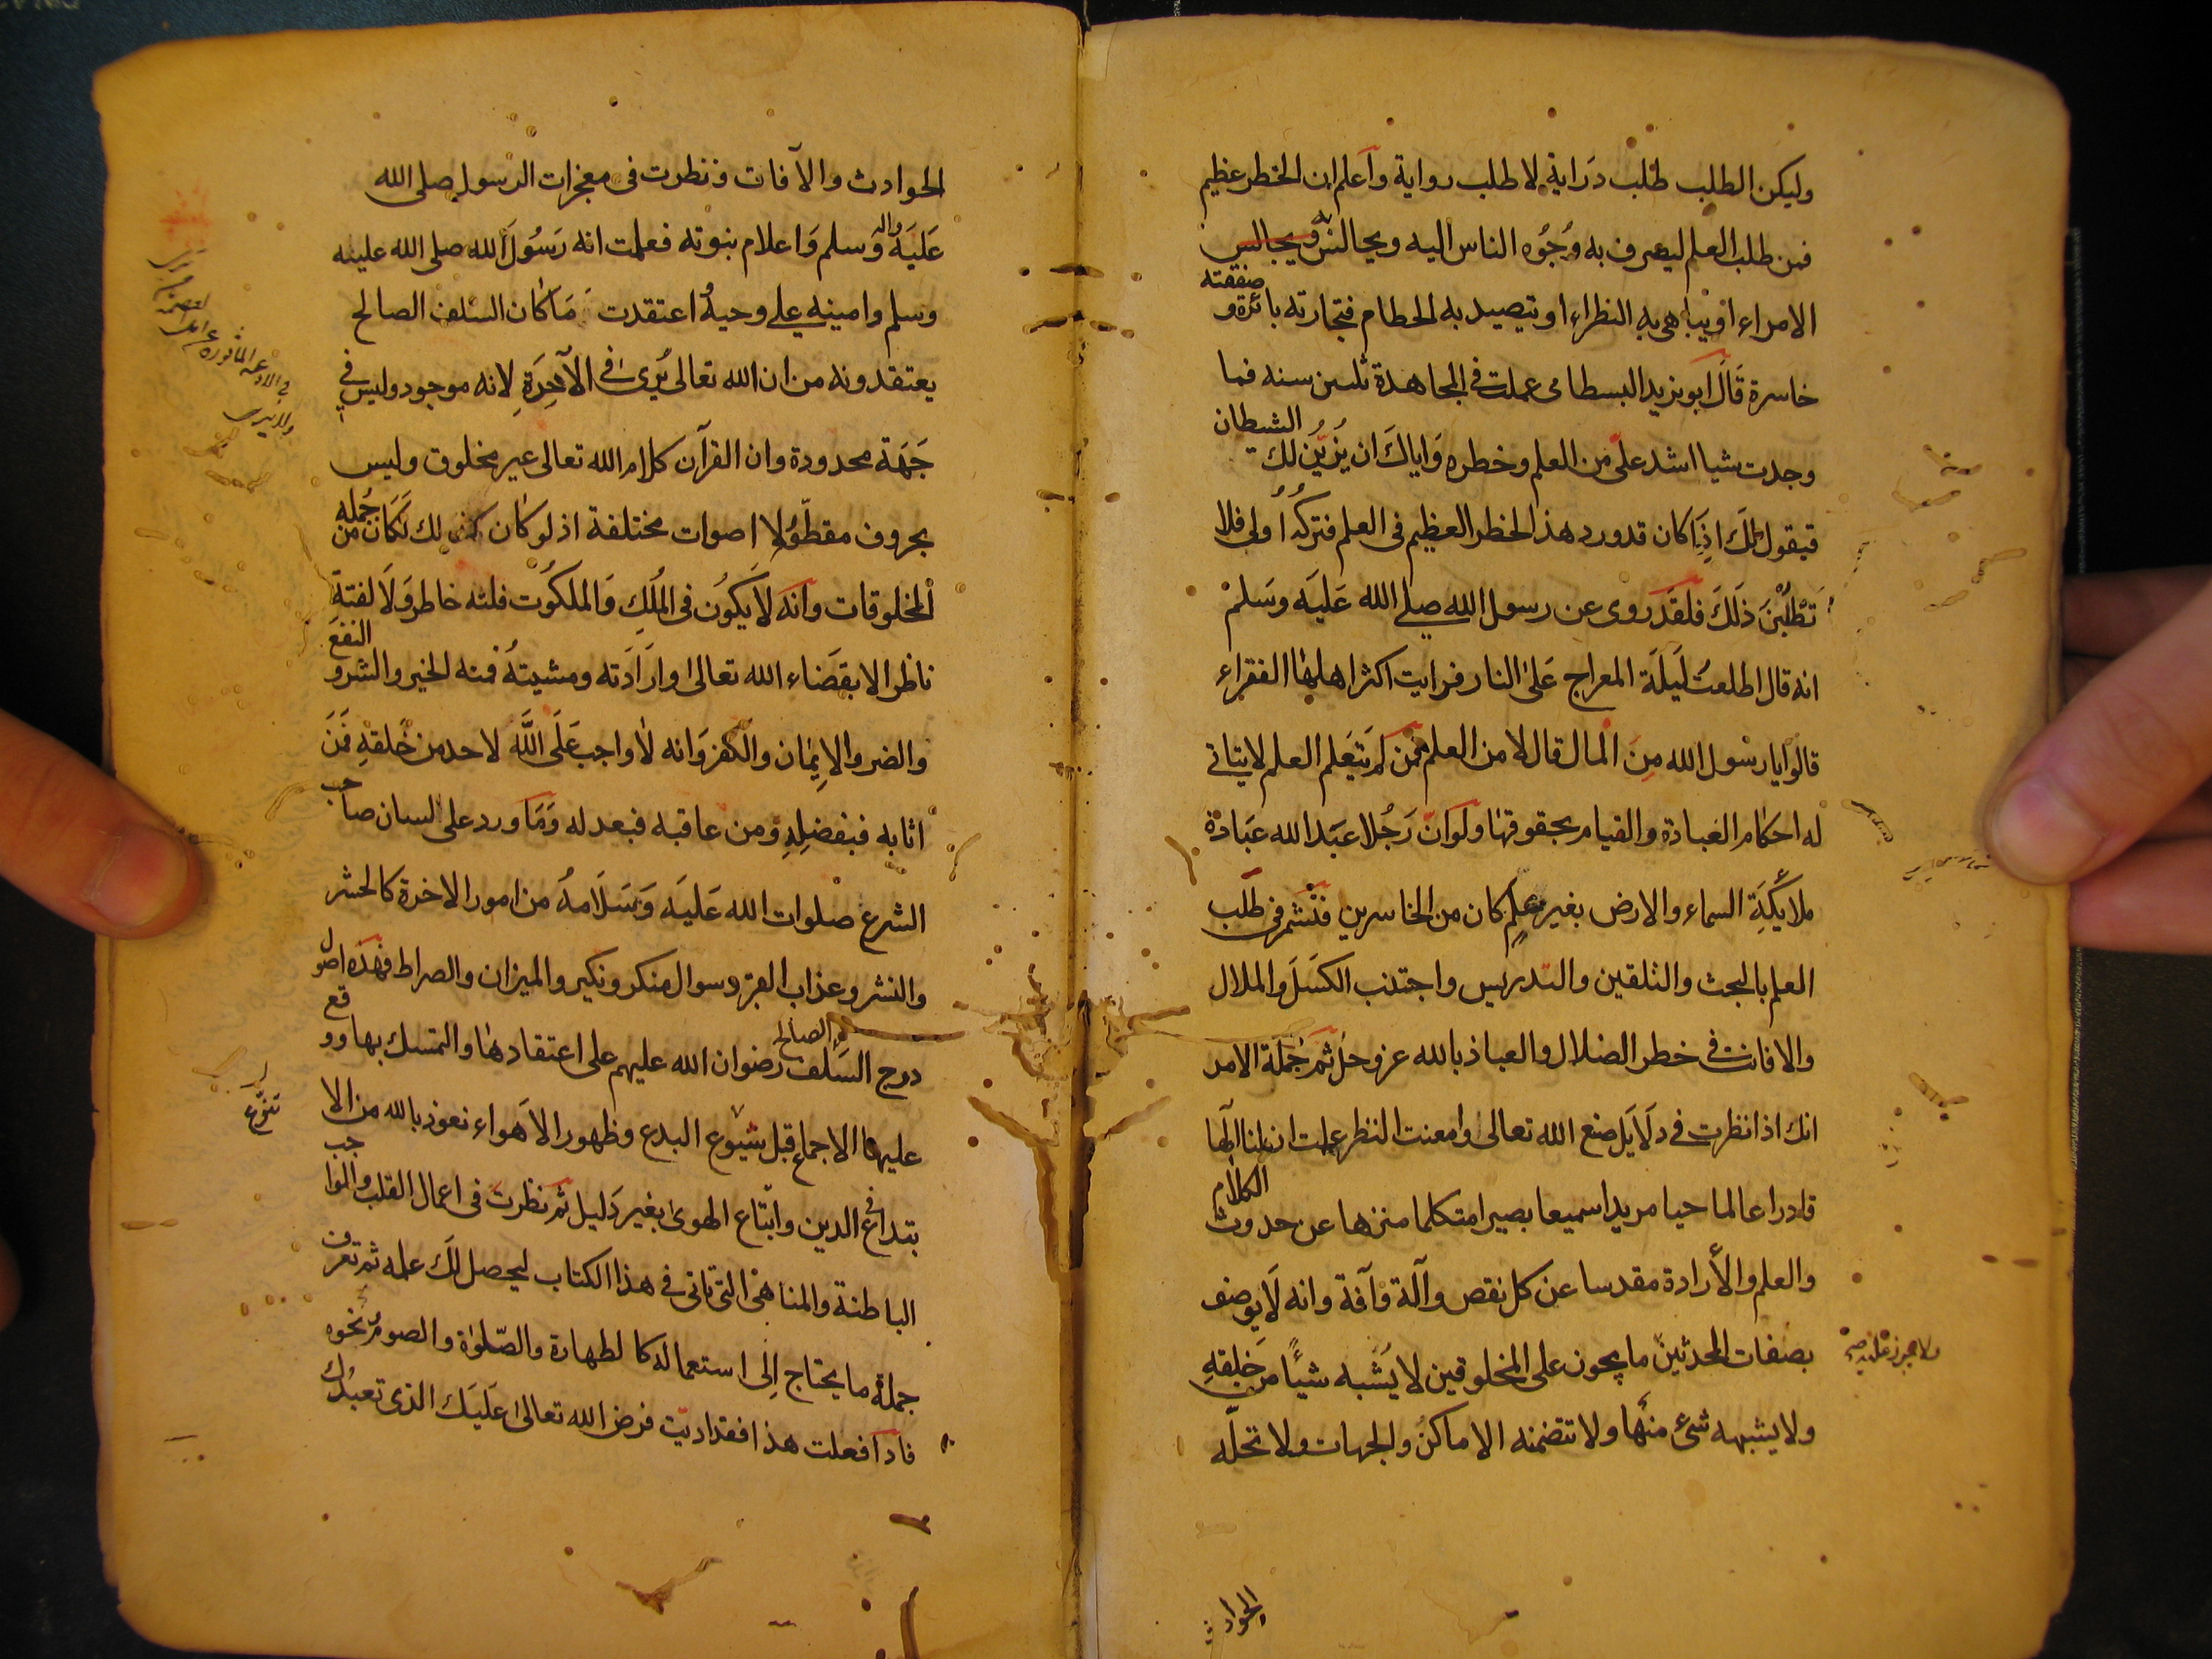 وليكن الطلب طلب دَراية لا طلب رواية وآعلم ان الخطر عظيم
فمن طلب العلم ليصرف به وُجُوُه الناس اليه ويجالس به
الامراء او يباهى به النظراء او يتصيد به الحطام فتجارته بائرة و صفقته
خاسرة قَالَ ابو يزيد البسطامى عملت فى المجاهدة ثلثين سنه فما
وجدت شيا اشد علىّ من العلم وخطره وَاياكَ ان يُزيّن لك الشطان
فيقول لك اذِا كان قد ورد هذ الخطر العظيم فى العلم فتركُه أولى فلا
تَظُنّنَ ذَلَكَ فلقد روى عن رسول الله صلے الله عَليَه وسَلمْ
انه قال اطلعتُ لَيلَة المعراج عَلىٰ النار فرايت اكثر اهلها الفقراء
قالوا يا رسول الله مِنَ المال قال لا من العلم فمن لم يَتَعَلم العلم لا يتاتى
له احكام العبادة والقيام بحقوقها ولو انّ رَجُلا عَبَد الله عبَادَة
ملائِكَة السماء والارض بغير علمٍ كان من الخاسرين فتشمر فى طلب
العلم بالبحث والتلقين والتدريس واجتنب الكسَلَ والملال
والا فانت فى خطر الضلال والعياذ بالله عز وجل ثم جُملة الامر
انك اذا نظرت فى دَلَايَل صنع الله تعالىٰ وامعنت النظر علمت ان لنا الٓها
قادرا عالما حيا مريدا سميعا بصيرا متكلما منزها عن حدوث الكلام
والعلم والأرادة مقدسا عن كل نقص وآلة وآفة وانه لَا يوصف
بصفات المحدثينْ ما يجوز على المخلوقين لا يَشبه شيئًا من خَلِقهِ
ولا يشبهه شىء منها ولا تتضمنه الاماكن والجهات ولا تحلّه
الحوادث
الحوادث والآفات ونظرت فى معجزات الرسول صلى الله
عَليَه واله وَسلم وَاعلام نبوته فعلمت انه رَسُولَ الله صلى الله عليه
وسلم وامينه علے وحيهُ اعتقدت مَا كان السّلف الصالح
يعتقدونه من ان الله تعالى يُرىٰ فى الآخِرَةِ لانه موجود وليس فى
جَهَة محدودة وان القرآن كلام الله تعالى غير مخلوق وليس
بحروف مقطّعة ولا اصوات مختلفة اذ لو كان كذلك لَكَان من جُمله
المخلوقات وانهَ لَا يكَوُن فى المُلكِ وَالملكُوت فلته خاطر وَلَا لفتة
ناظر الا بقَضَاء الله تعالىٰ وارَادَته ومشيتهُ فمنه الخير والشر و النفع
والضر والايِمٰان والكفر وَانه لا واجب عَلَى اللَّه لاحد من خَلقهِ فَمَن
اثابه فبفضلِهِ ومن عاقبه فبعدله وَمَا ورد على لسان صاحب
الشرع صلوات الله عَليَه وَسَلَامهُ من امور الاخرة كالحشر
والنشر وعذاب القبر وسوال منكر ونكير والميزان والصراط فهذه اصول
درج السَلف الصالح رضوان الله عليهم على اعتقادها والتمسك بها ووقع
عليها الاجماع قبل شيوع البدع وظهور الاَهواء نعوذ بالله من الا
بتداع فى الدين وابتّاع الهوىٰ بغير دَليل ثم نظرتَ فى اعمال القلب والمواجب
الباطنة والمناهى التى تاتى فى هذا الكتاب ليحصل لَك علمه ثم تعرف
جملة ما يحتاج اِلى استعماله كا لطهارة والصّلوٰة والصوم ونحوه
فادا فعلت هذا فقد اديت فرض الله تعالىٰ عَليَك الذى تعبدك